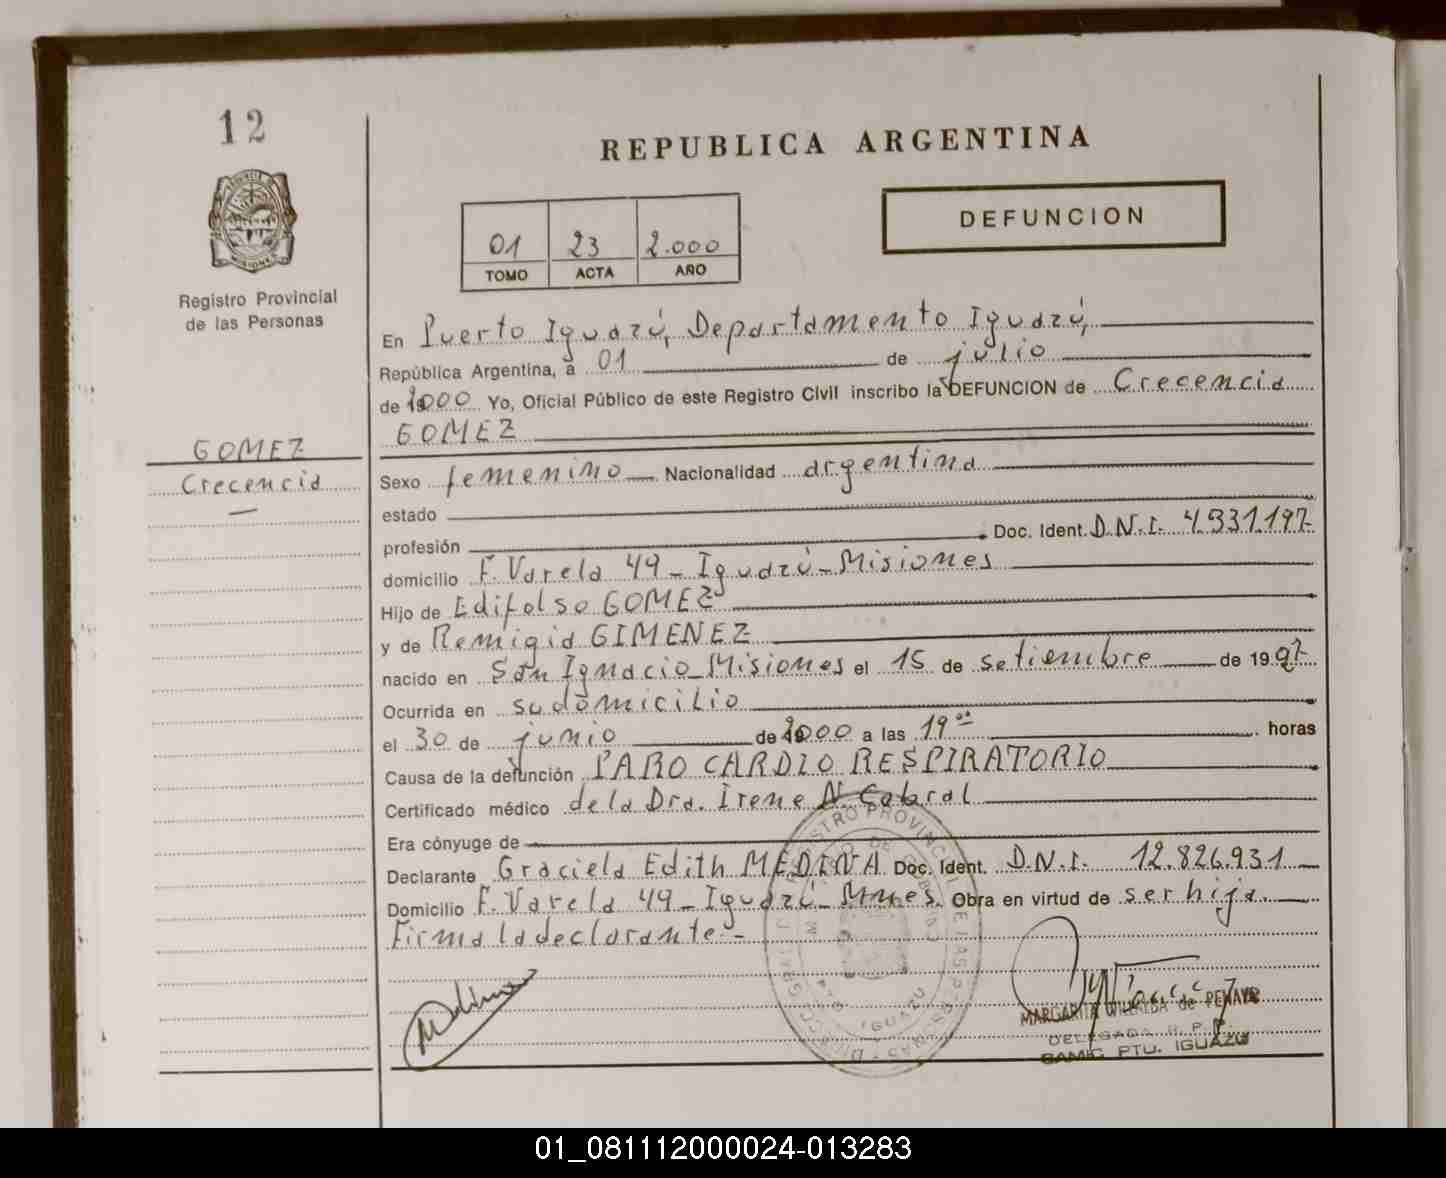 12
REPUBLICA ARGENTINA
DEFUNCION
01 23 2.000
TOMO ACTA AÑO
Registro Provincial
de las Personas
En Puerto Iguazú, Departamento Iguazú,
República Argentina, a 01 de julio
de 2000 Yo, Oficial Público de este Registro Civil inscribo la DEFUNCION de Crecencia
GOMEZ
GOMEZ
Crecencia
Sexo femenino Nacionalidad argentina
estado
profesión Doc. Ident. D.N.I. 4.931.197
domicilio F. Varela 49 - Iguazú - Misiones
Hijo de Edifolso GOMEZ
y de Remigia GIMENEZ
nacido en San Ignacio - Misiones el 15 de setiembre de 19
Ocurrida en su domicilio
el 30 de junio de 2000 a las 19 horas
Causa de la defunción PARO CARDIO RESPIRATORIO
Certificado médico de la Dra. Irene N. Cabral
Era cónyuge de
Declarante Graciela Edith MEDINA Doc. Ident. D.N.I. 12.826.931
Domicilio F. Varela 49 - Iguazú - Mnes. Obra en virtud de ser hija.
Firma la declarante.-
MARGARITA VILLALBA de PENAYO
DELEGADA R. P. P.
GAMIC PTO. IGUAZU
01_081112000024-013283